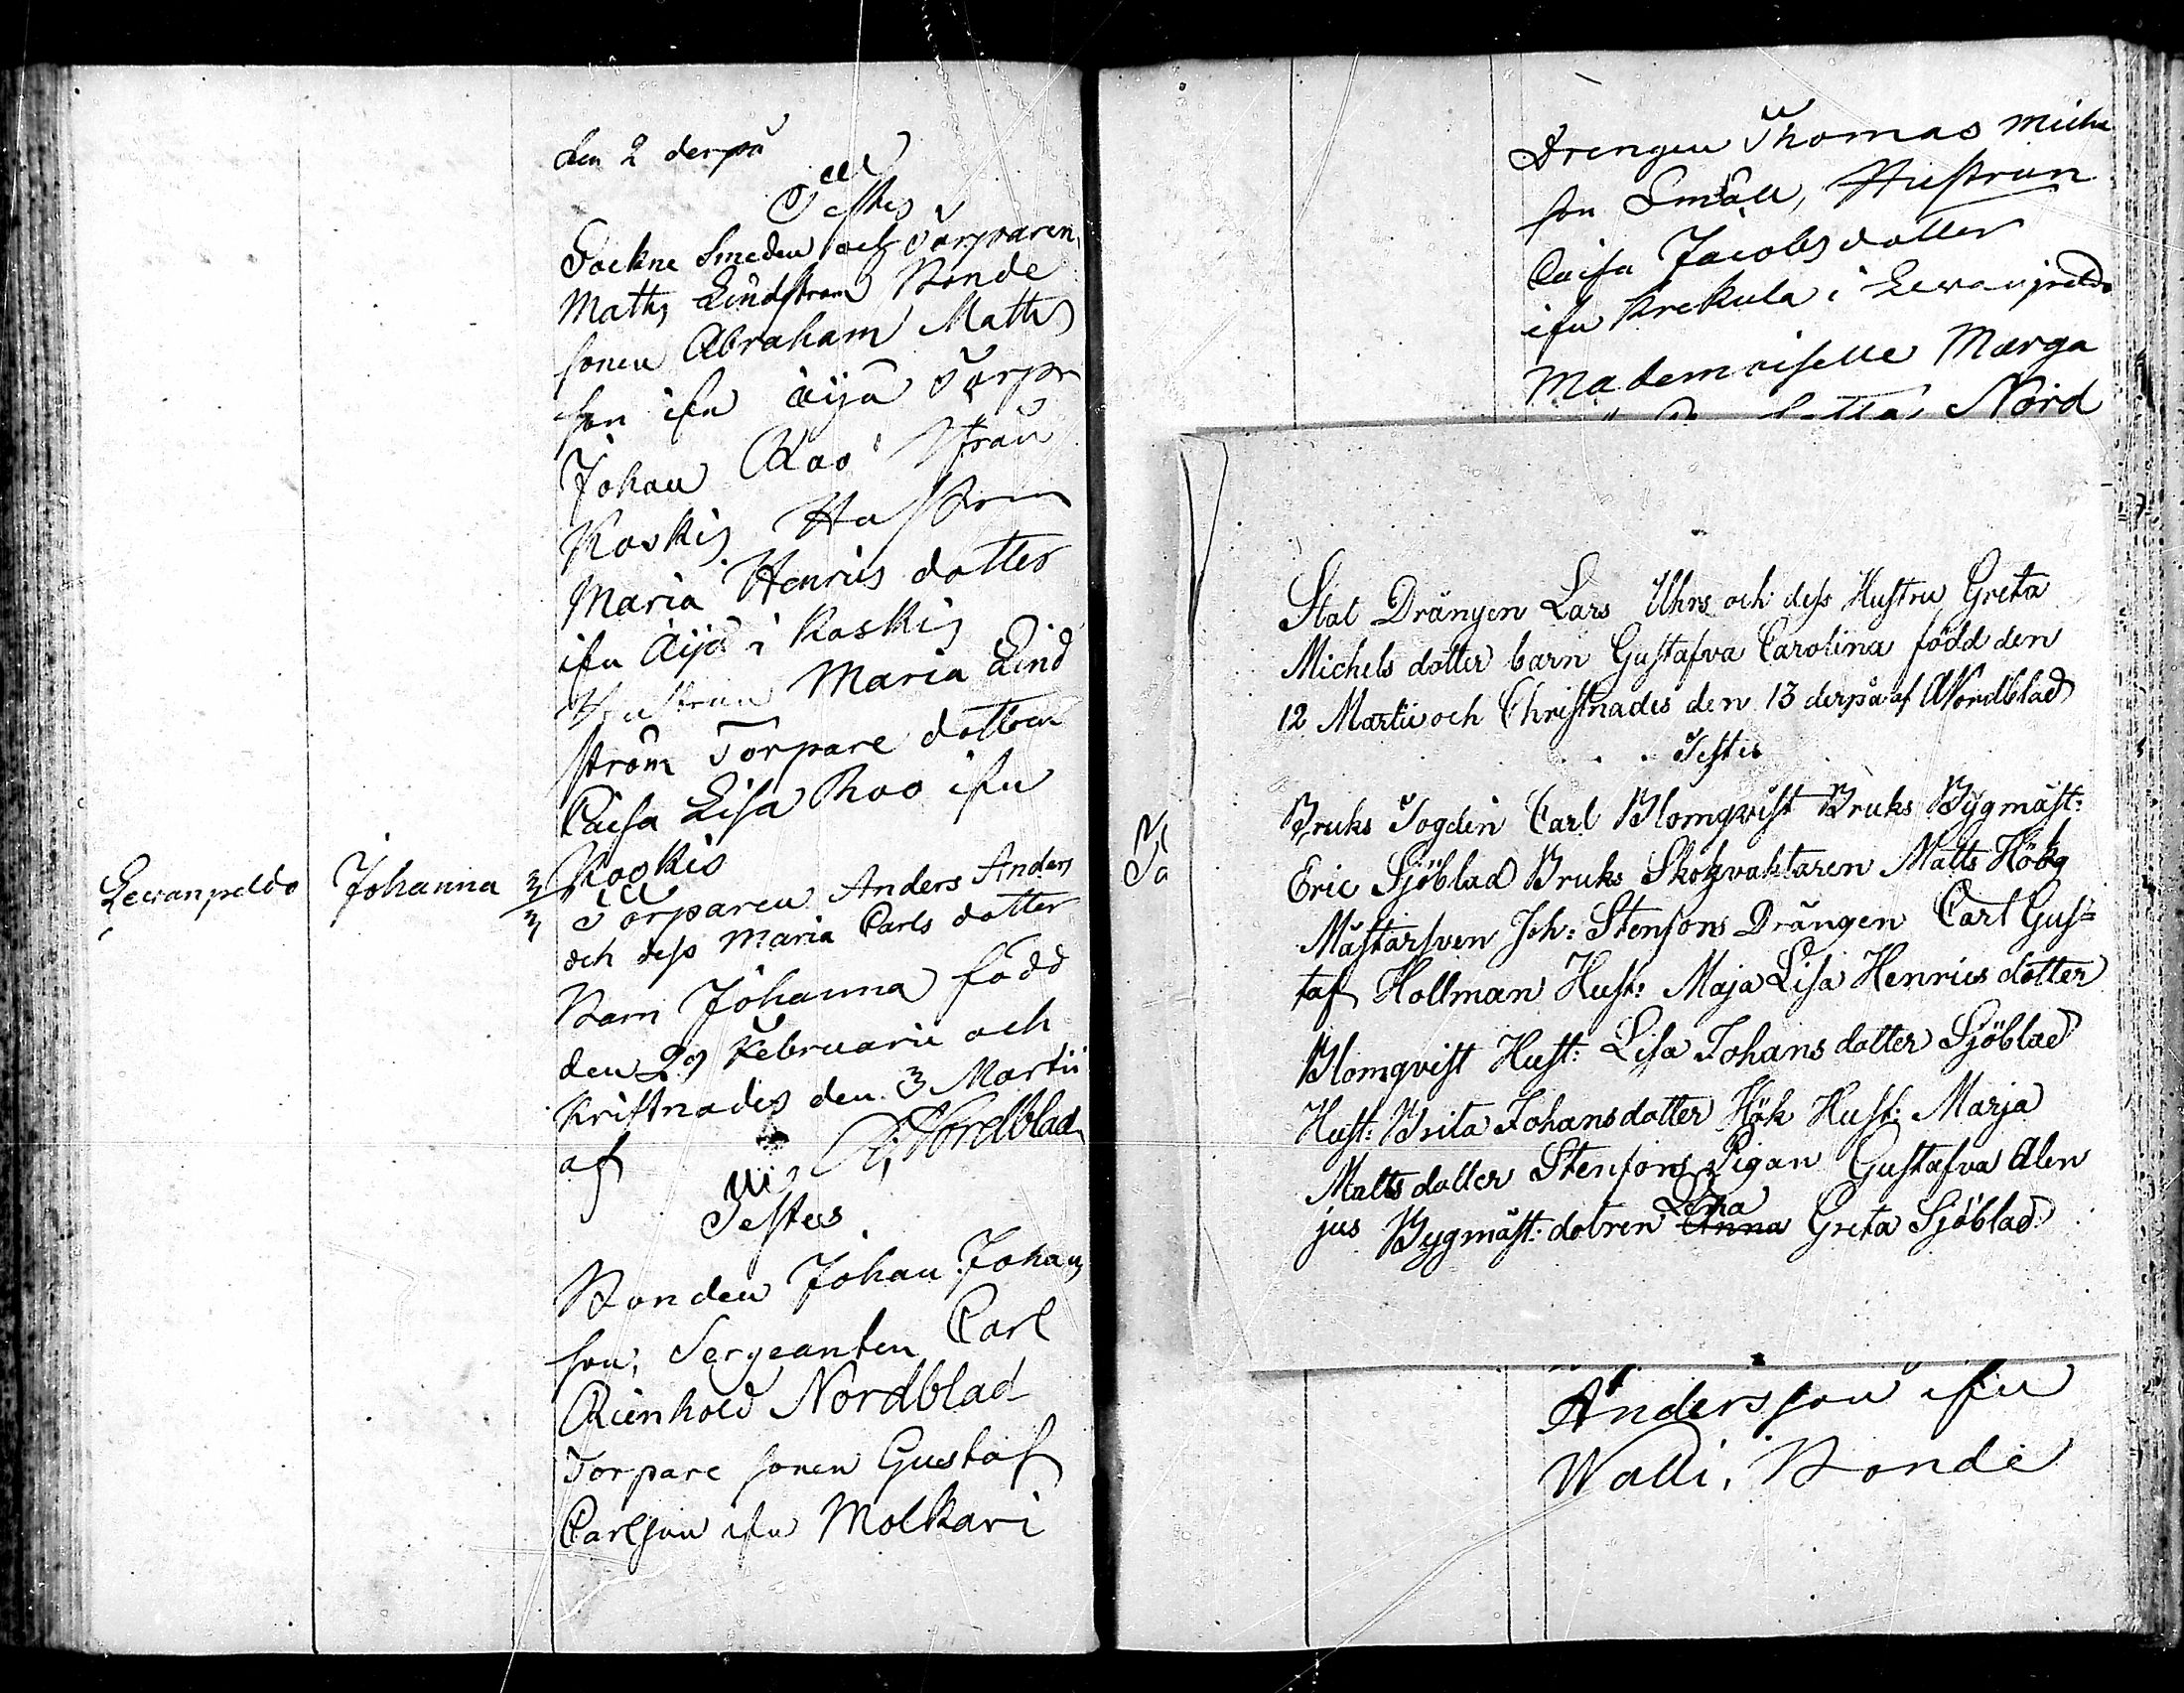 den 2 derpå
Testes
Sockne Smeden och Torparen
Matts Lindström Bonde
sonen Abraham Matts
son ifn Äijä Torpr
Johan Roo ifrån
Koskis Hustrun
Maria Henrics dotter
ifn Äijä i Koskis
Hustrun Maria Lind
ström Torpare dottren
Caisa Lisa Roo ifn
Koskis
Lewanpeldo Johanna 3/3 Torparen Anders Anders
och dess Maria Carls dotter
Barn Johanna född
den 29 Februarii och
Kristnades den 3 Martii
af Nordblad
Testes
Bonden Johan Johans
son, Sergeanten Carl
Reinhold Nordblad
Torpare sonen Gustaf
Carlsson ifn Molkari
Drengen Thomas Miche
son Småll, Hustrun
Caisa Jacobsdotter
ifn Krekula i Lewanpeldo
Mademoiselle Marga
Nord
Stat Drängen Lars Uhrs och dess Hustru Greta
Michels dotter barn Gustafva Carolina född den
12 Martii och Christnades den 13 derpå af A Nordblad
Testis
Bruks Fogden Carl Blomqvist Bruks Bygmäst:
Eric Sjöblad Bruks Skogvaktaren Matts Hök
Mästarsven Joh: Stensons Drängen Carl Gus=
taf Hollman Hust: Maja Lisa Henrics dotter
Blomqvist Hust: Lisa Johans dotter Sjöblad
Hust: Brita Johansdotter Hök Hust: Marja
Matts dotter Stensons Pigan Gustafva Alen
Lena
jus Bygmäst: dotren Anna Greta Sjöblad
Andersson ifn
Walli, Bonde